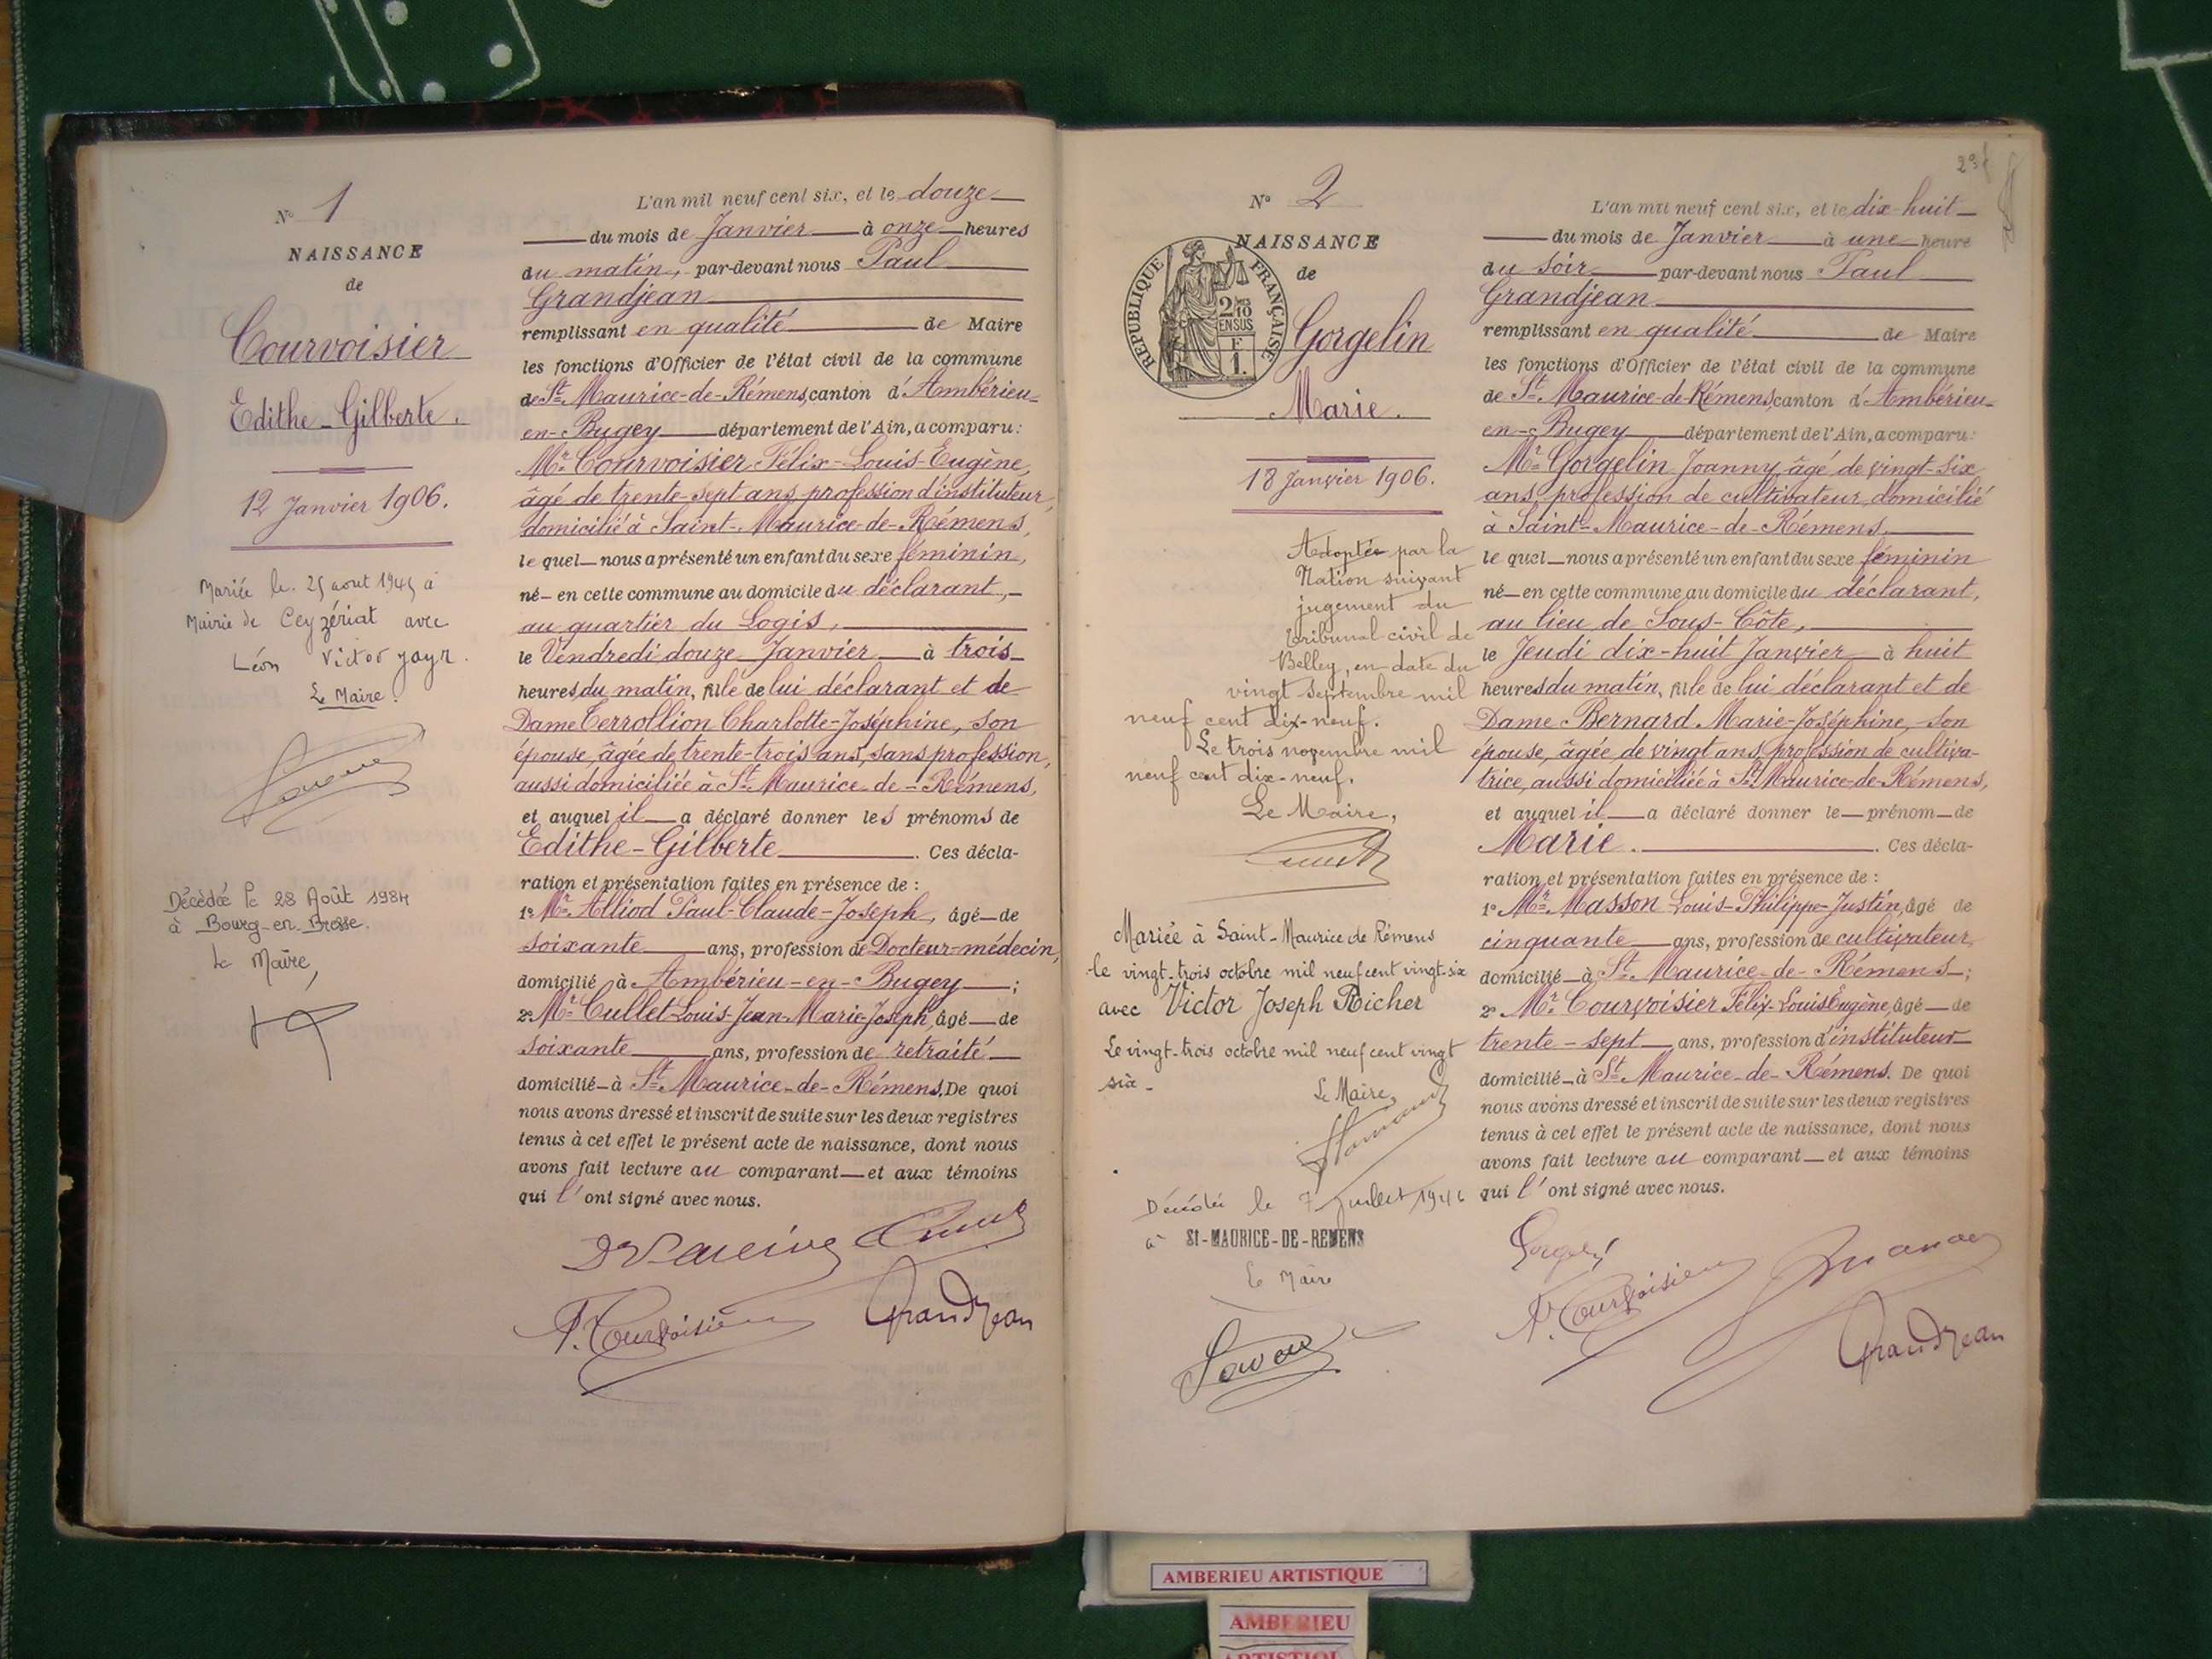 N° 1
NAISSANCE
de
Courvoisier
Edithe-Gilberte.
12 Janvier 1906.
Mariée le 25 aout 1945 à
Mairie de Ceyzériat avec
Léon Victor Jayr.
Le Maire.
Décédée le 28 Août 1984
à Bourg-en-Bresse.
Le Maire,
L'an mil neuf cent six, et le douze
du mois de Janvier à onze heures
du matin, par-devant nous Paul
Grandjean
remplissant en qualité de Maire
les fonctions d'Officier de l'état civil de la commune
de St Maurice-de-Rémens, canton d'Ambérieu-
en-Bugey département de l'Ain, a comparu:
Mr Courvoisier Félix-Louis-Eugène,
âgé de trente-sept ans, profession d'instituteur,
domicilié à Saint-Maurice-de-Rémens,
le quel nous a présenté un enfant du sexe féminin,
né en cette commune au domicile du déclarant,
au quartier du Logis,
le Vendredi douze Janvier à trois
heures du matin, fille de lui déclarant et de
Dame Terrollion Charlotte-Joséphine, son
épouse, âgée de trente-trois ans, sans profession,
aussi domiciliée à St Maurice-de-Rémens,
et auquel il a déclaré donner les prénoms de
Edithe-Gilberte. Ces décla-
ration et présentation faites en présence de :
1° Mr Alliod Paul-Claude-Joseph, âgé de
soixante ans, profession de Docteur-médecin,
domicilié à Ambérieu-en-Bugey ;
2° Mr Cullet Louis-Jean-Marie-Joseph, âgé de
soixante ans, profession de retraité
domicilié à St Maurice-de-Rémens. De quoi
nous avons dressé et inscrit de suite sur les deux registres
tenus à cet effet le présent acte de naissance, dont nous
avons fait lecture au comparant et aux témoins
qui l'ont signé avec nous.
F. Courvoisier Grandjean
N° 2
NAISSANCE
de
REPUBLIQUE FRANÇAISE
2/10
EN SUS
F
1.
Gorgelin
Marie.
18 Janvier 1906.
Adoptée par la
Nation suivant
jugement du
tribunal civil de
Belley, en date du
vingt septembre mil
neuf cent dix-neuf.
Le trois novembre mil
neuf cent dix-neuf.
Le Maire,
Mariée à Saint-Maurice de Rémens
le vingt-trois octobre mil neuf cent vingt-six
avec Victor Joseph Richer
Le vingt-trois octobre mil neuf cent vingt
six -
Le Maire,
Décédée le 7 juillet 1946
à ST-MAURICE-DE-REMENS
Le Maire
L'an mil neuf cent six, et le dix-huit
du mois de Janvier à une heure
du soir par-devant nous Paul
Grandjean
remplissant en qualité de Maire
les fonctions d'Officier de l'état civil de la commune
de St Maurice-de-Rémens, canton d'Ambérieu-
en-Bugey département de l'Ain, a comparu:
Mr Gorgelin Joanny, âgé de vingt-six
ans, profession de cultivateur, domicilié
à Saint-Maurice-de-Rémens
le quel nous a présenté un enfant du sexe féminin
né en cette commune au domicile du déclarant,
au lieu de Sous-Côte,
le Jeudi dix-huit Janvier à huit
heures du matin, fille de lui déclarant et de
Dame Bernard Marie-Joséphine, son
épouse, âgée de vingt ans, profession de cultiva-
trice, aussi domiciliée à St Maurice-de-Rémens,
et auquel il a déclaré donner le prénom de
Marie. Ces décla-
ration et présentation faites en présence de :
1° Mr Masson Louis-Philippe-Justin, âgé de
cinquante ans, profession de cultivateur,
domicilié à St Maurice-de-Rémens ;
2° Mr Courvoisier Félix-Louis Eugène, âgé de
trente-sept ans, profession d'instituteur
domicilié à St Maurice-de-Rémens. De quoi
nous avons dressé et inscrit de suite sur les deux registres
tenus à cet effet le présent acte de naissance, dont nous
avons fait lecture au comparant et aux témoins
qui l'ont signé avec nous.
F. Courvoisier
Grandjean
AMBERIEU ARTISTIQUE
AMBERIEU